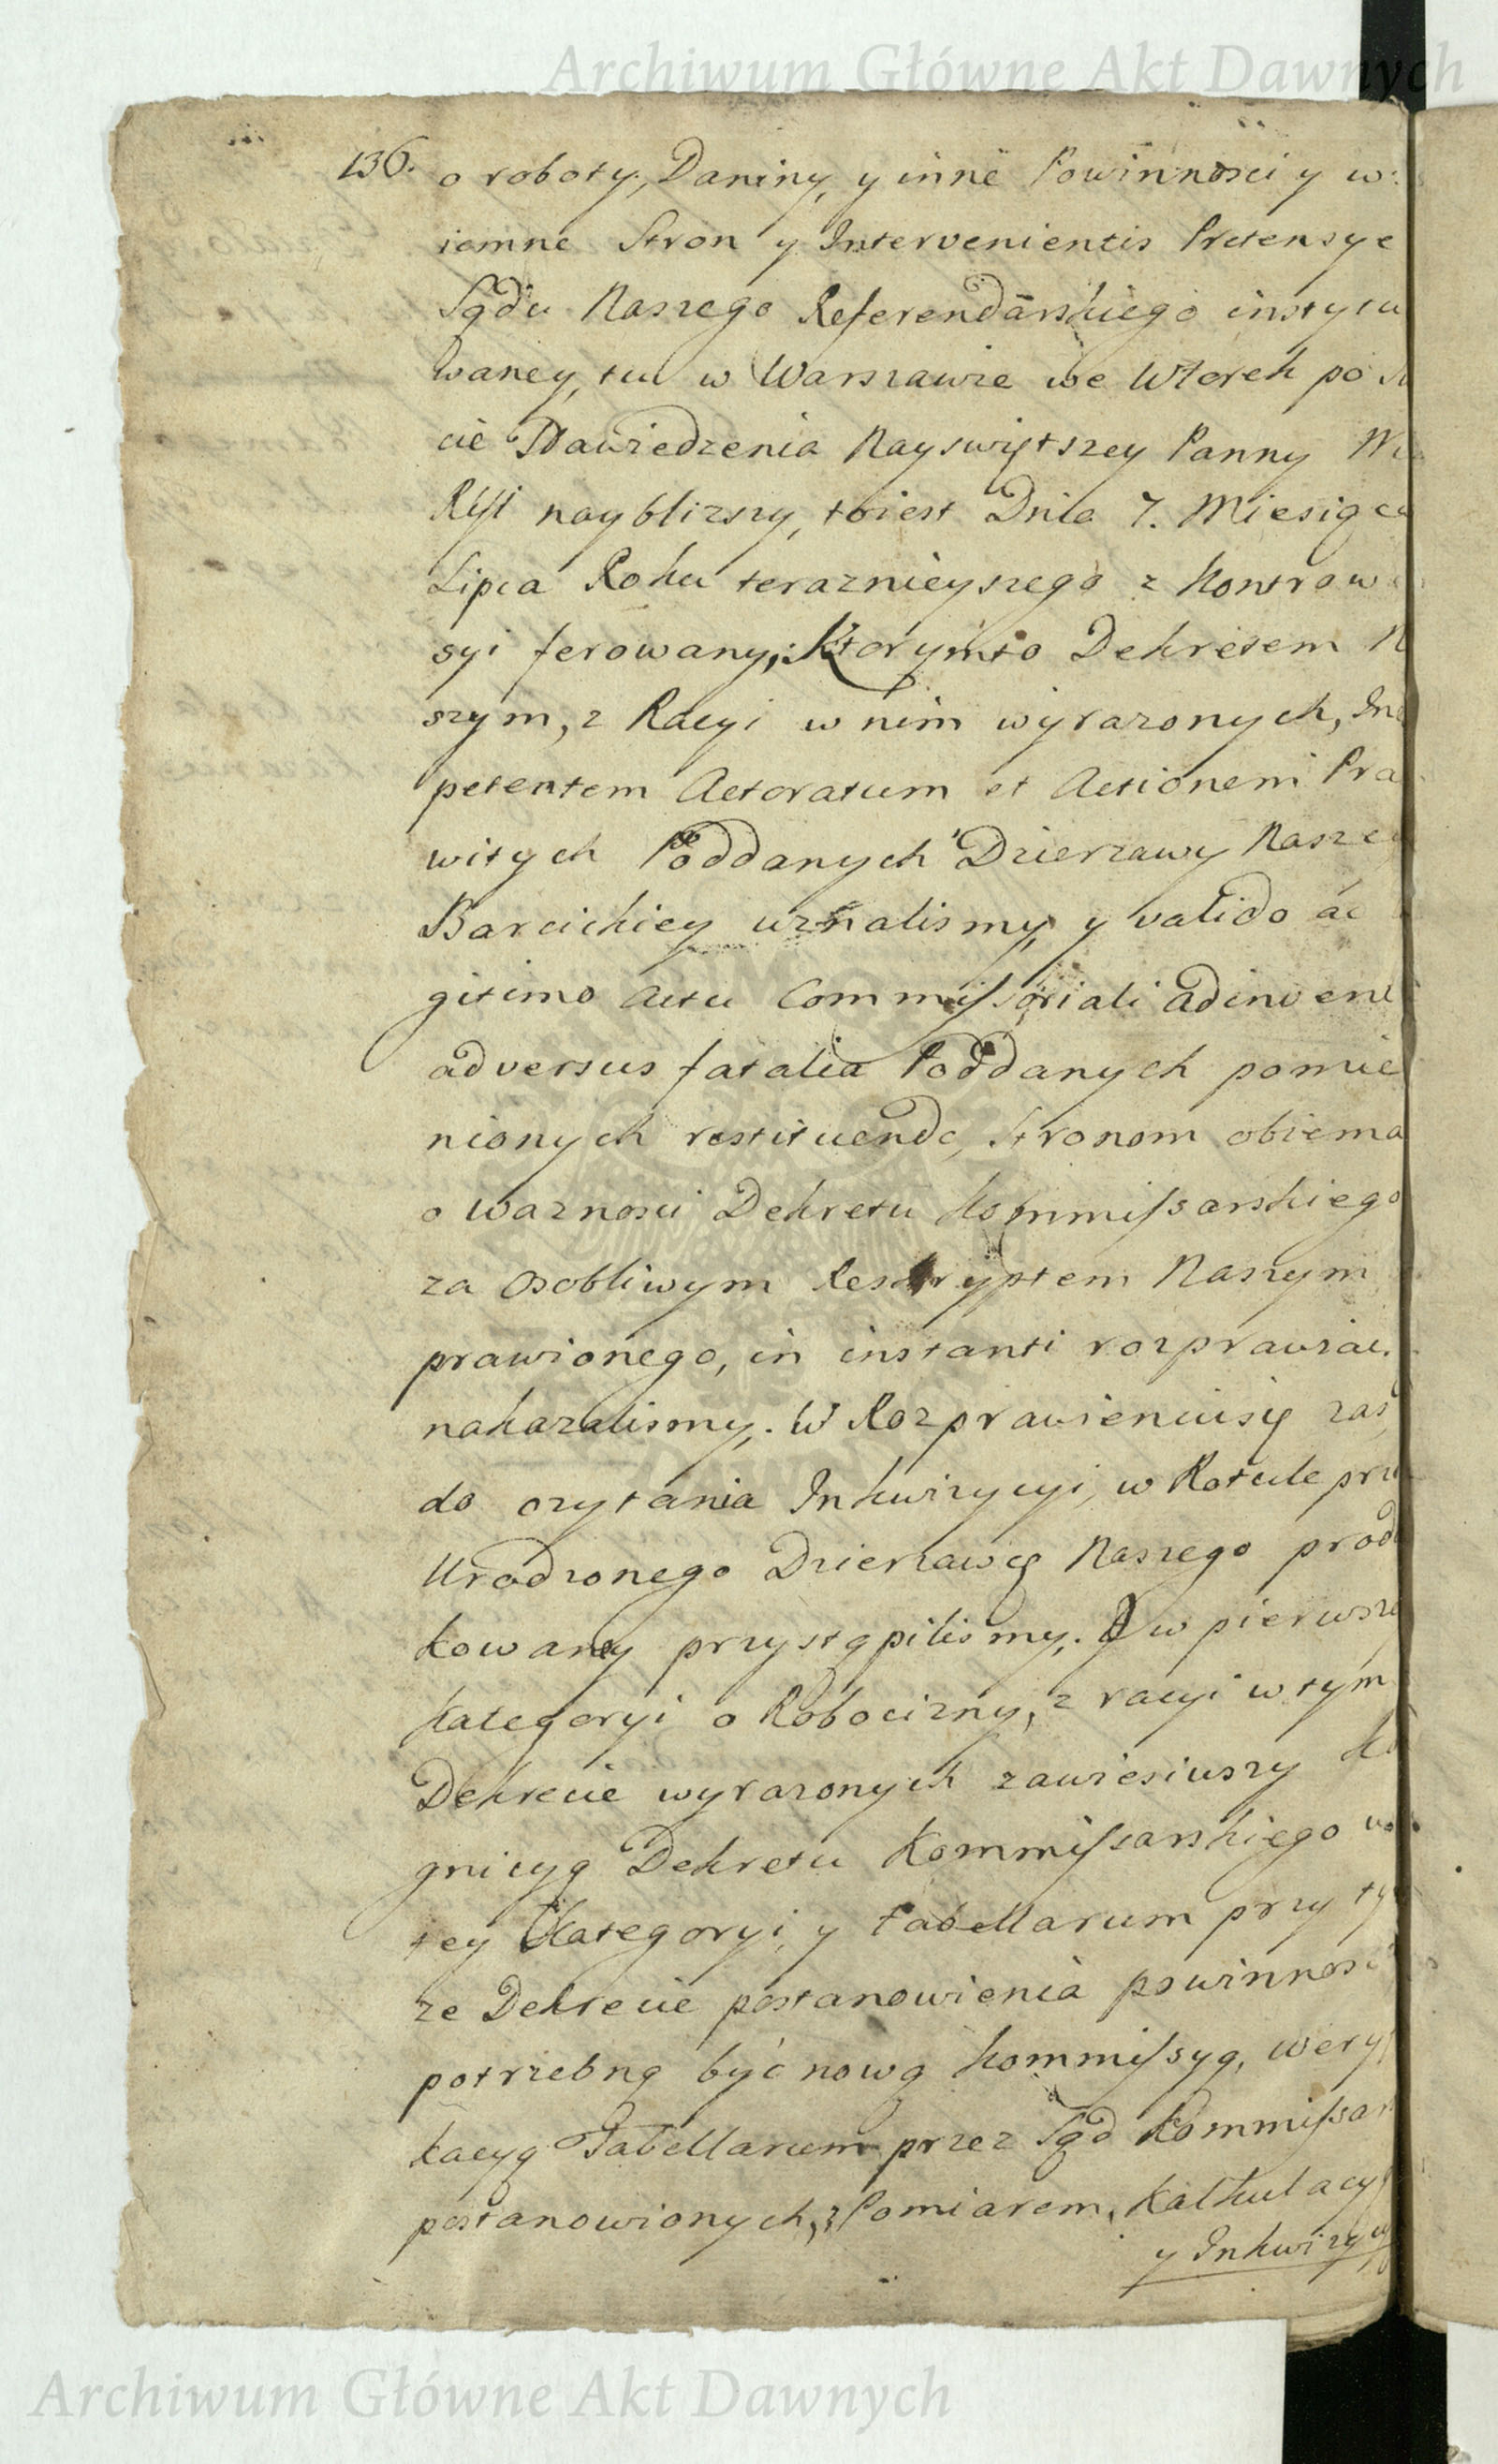 Archiwum Główne Akt Dawnych
136. o roboty, Daniny, y inne Powinnosci y w:
iemne Stron y Intervenientis Pretensye
Sądu Naszego Referendarskiego instytu
waney, tu w Warszawie we Wtorek po
cie Nawiedzenia Nayswiętszey Panny
Ryi nayblizszy, toiest Dnia 7. Miesiąca
Lipca Roku teraznieyszego z Kontrow
syi ferowany; Ktorymto Dekretem N
szym, z Racyi w nim wyrazonych, In
petentem Actoratum et Actionem Pra
witych Poddanych Dzierzawy Naszey
Barcickiey uznalismy, y valido ac
gitimo Actu Commissoriali adinvent
adversus fatalia Poddanych pomie
nionych restituendo, Stronom obiema
o waznosci Dekretu Kommissarskiego
za Osobliwym Reskryptem Naszym
prawionego, in instanti rozprawiac
nakazalismy. W Rozprawieniusię zas,
do czytania Inkwizycyi, w Rotule prz
Urodzonego Dzierzawcę Naszego prod
kowaney przystąpilismy. A w pierwszey
Kategoryi o Robocizny, z racyi w tym
Dekrecie wyrazonych zawiesiwszy
gnicyą Dekretu Kommissarskiego
tey Kategoryi, y Tabellarum przy ty
ze Dekrecie postanowienia powinnosci
potrzebną być nową Kommissyą, wery
kacyą Tabellarum przez Sąd Kommissar
postanowionych, z Pomiarem, Kalkulacyą
y Inkwizycyą
Archiwum Główne Akt Dawnych